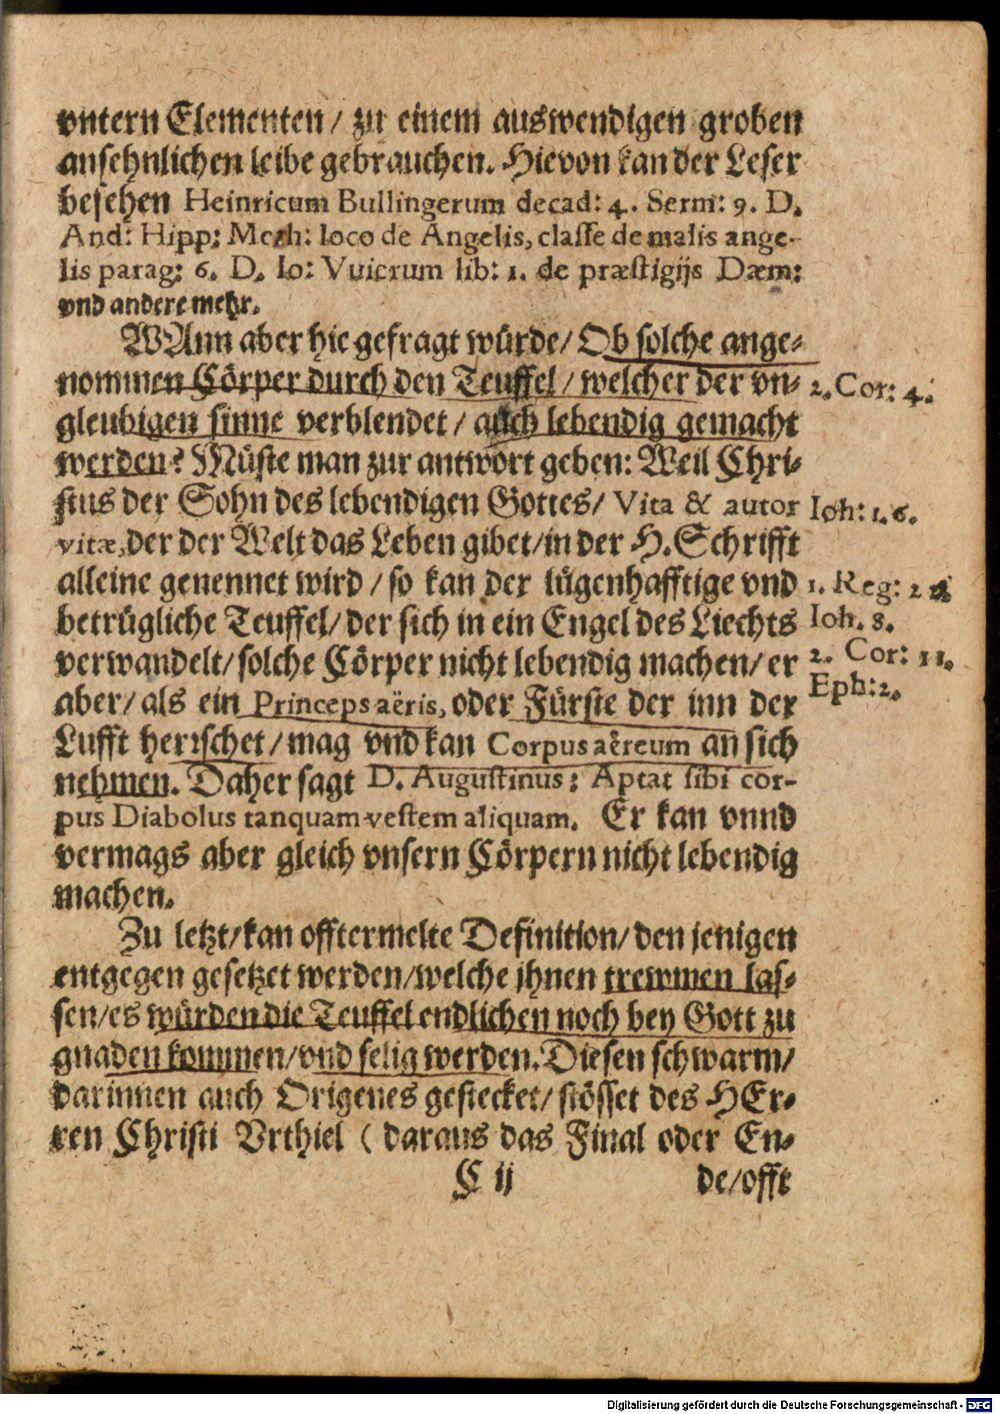 vntern Elementen / zu einem auswendigen groben
ansehnlichen leibe gebrauchen. Hievon kan der Leser
besehen Heinricum Bullingerum decad: 4. Serm: 9. D.
And: Hipp: Meth: loco de Angelis, classe de malis ange-
lis parag: 6. D. Io: Vuierum lib: 1. de præstigijs Dæm:
vnd andere mehr.
WAnn aber hie gefragt würde / Ob solche ange-
nommen Cörper durch den Teuffel / welcher der vn- 2. Cor: 4.
gleubigen sinne verblendet / auch lebendig gemacht
werden? Müste man zur antwort geben: Weil Chri-
stus der Sohn des lebendigen Gottes / Vita & autor Ioh: 1. 6.
vitæ, der der Welt das Leben gibet / in der H. Schrifft
alleine genennet wird / so kan der lügenhafftige vnd 1. Reg: 22
betrügliche Teuffel / der sich in ein Engel des Liechts Ioh. 8.
verwandelt / solche Cörper nicht lebendig machen / er 2. Cor: 11.
aber / als ein Princeps aëris, oder Fürste der inn der Eph: 2.
Lufft herrschet / mag vnd kan Corpus aëreum an sich
nehmen. Daher sagt D. Augustinus: Aptat sibi cor-
pus Diabolus tanquam vestem aliquam. Er kan vnnd
vermags aber gleich vnsern Cörpern nicht lebendig
machen.
Zu letzt / kan offtermelte Definition / den jenigen
entgegen gesetzet werden / welche jhnen trewmen las-
sen / es würden die Teuffel endlichen noch bey Gott zu
gnaden kommen / vnd selig werden. Diesen schwarm /
darinnen auch Origenes gestecket / stösset des HEr-
ren Christi Vrthiel ( daraus das Final oder En-
C ij de / offt
Digitalisierung gefördert durch die Deutsche Forschungsgemeinschaft - DFG